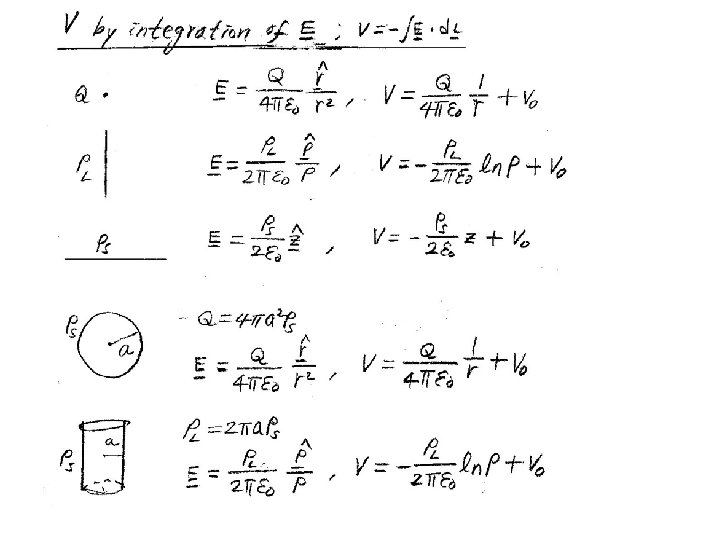 V by integration of E ; V = -∫E · dL
Q · E = Q/4πε₀ r̂/r² , V = Q/4πε₀ 1/r + V₀
ρ_L E = ρ_L/2πε₀ ρ̂/ρ , V = - ρ_L/2πε₀ ln ρ + V₀
ρ_s E = ρ_s/2ε₀ ẑ , V = - ρ_s/2ε₀ z + V₀
Q = 4πa²ρ_s
ρ_s a E = Q/4πε₀ r̂/r² , V = Q/4πε₀ 1/r + V₀
ρ_L = 2πaρ_s
ρ_s a E = ρ_L/2πε₀ ρ̂/ρ , V = - ρ_L/2πε₀ ln ρ + V₀